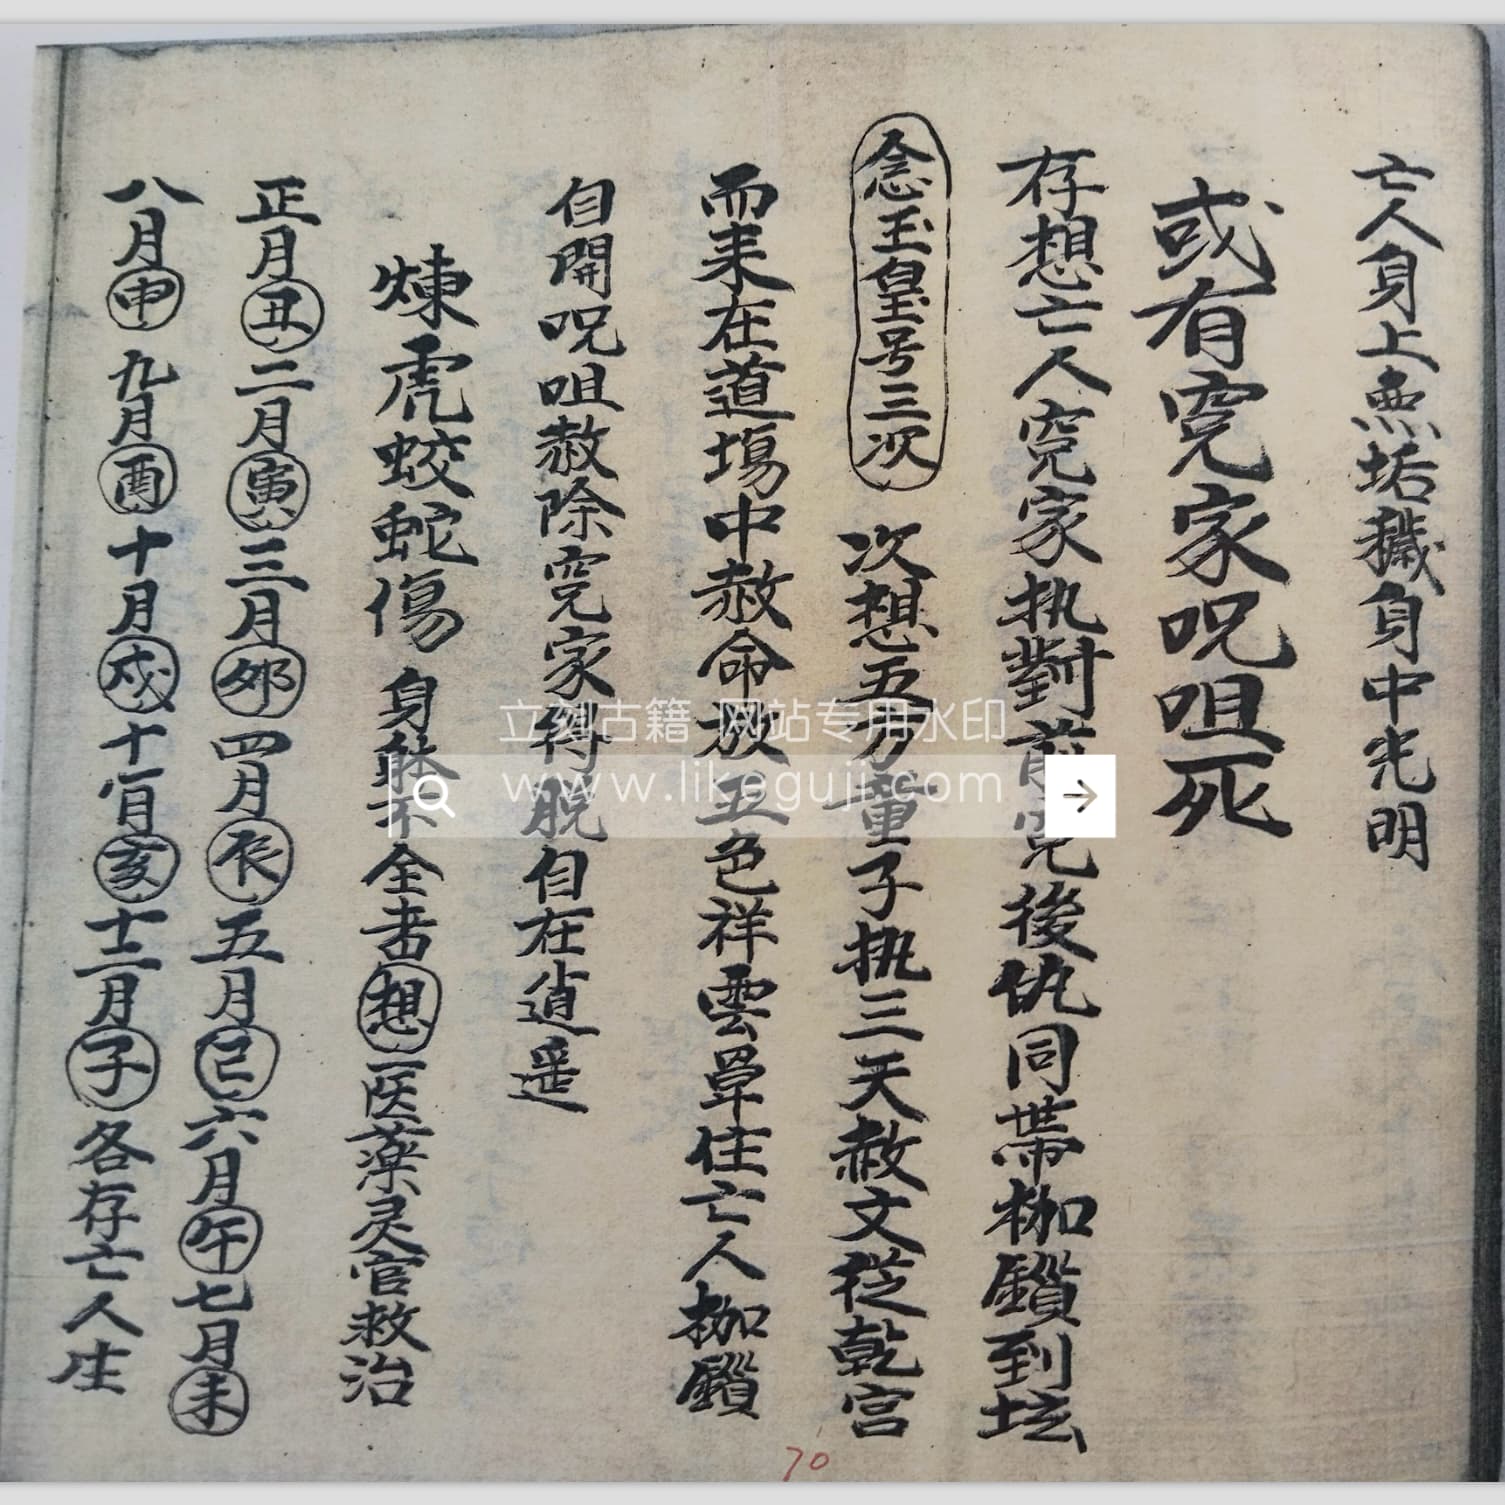 亡人身上無垢穢身中光明
或有寃家呪咀死
存想亡人寃家执對前寃後仇同帶枷鎖到坛
念玉皇号三次 次想五方童子执三天赦文從乾宮
而来在道場中赦命放五色祥雲罩住亡人枷鎖
自開呪咀赦除寃家得脱自在逍遥
煉虎蛟蛇傷 身躰不全者想医藥灵官救治
正月丑二月寅三月卯四月辰五月巳六月午七月未
八月申九月酉十月戍十一月亥十二月子各存亡人生
70
立刻古籍 网站专用水印
www.likeguji.com